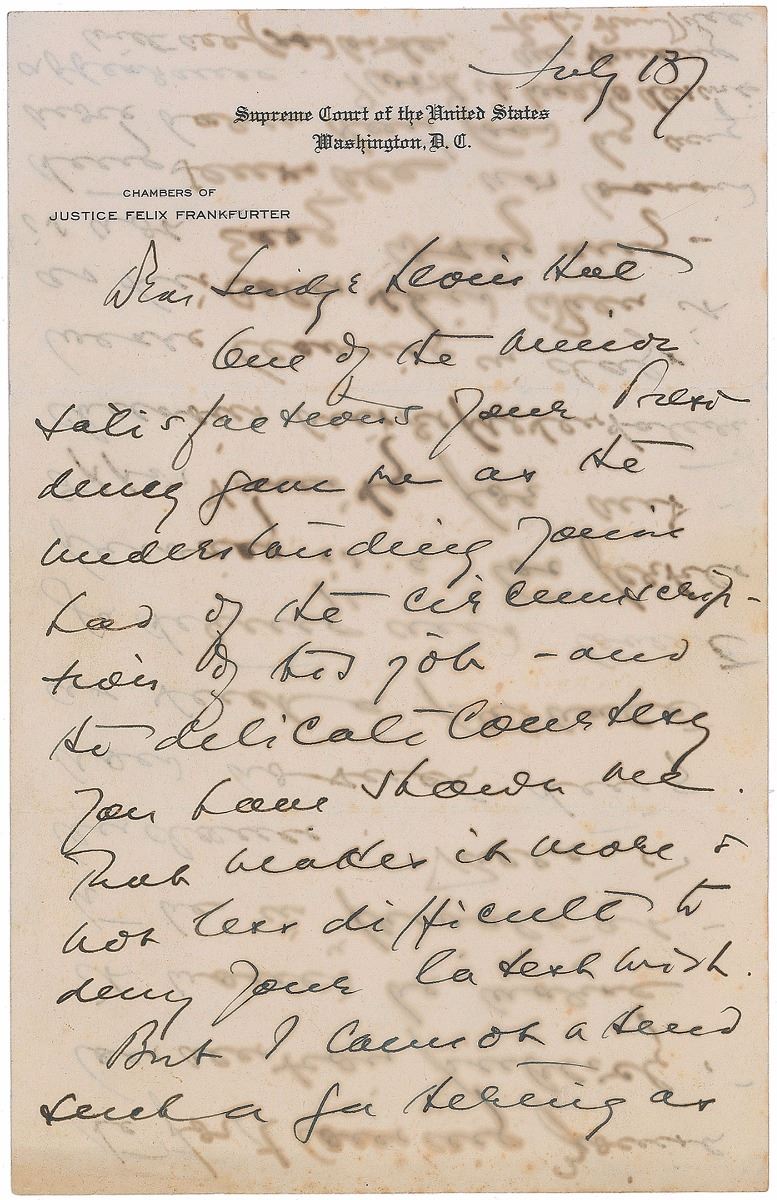 July 18
Supreme Court of the United States
Washington, D. C.
CHAMBERS OF
JUSTICE FELIX FRANKFURTER
Dear Judge
One of the minor
satisfactions your Presi
dency gave me as the
understanding
had of the circumscrip-
tion of his job - and
the delicate courtesy
you have shown me.
That makes it more &
not less difficult to
deny your latest wish.
But I cannot attend
such a gathering as